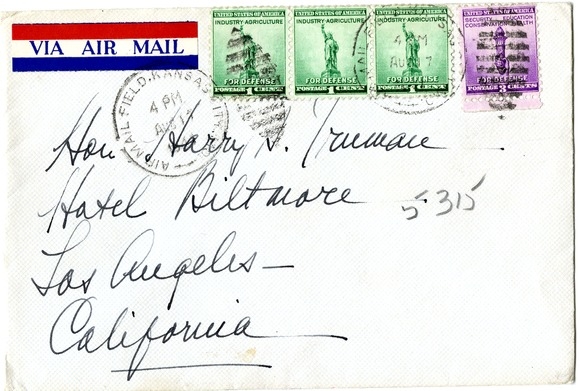 VIA AIR MAIL
UNITED STATES OF AMERICA UNITED STATES OF AMERICA UNITED STATES OF AMERICA UNITED STATES OF AMERICA
INDUSTRY-AGRICULTURE INDUSTRY-AGRICULTURE INDUSTRY-AGRICULTURE SECURITY EDUCATION
CONSERVATION HEALTH
FOR DEFENSE FOR DEFENSE FOR DEFENSE FOR DEFENSE
POSTAGE 1 CENT POSTAGE 1 CENT POSTAGE 1 CENT POSTAGE 3 CENTS
AIR MAIL FIELD, KANSAS
4 PM
AUG 14
4 PM
AUG
Hon. Harry S. Truman
Hotel Biltmore 5315
Los Angeles—
California